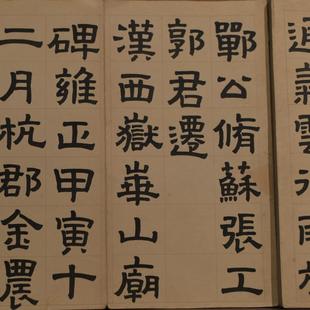 通氣雲行雨
鄲公脩蘇張工
郭君遷
漢西嶽崋山廟
碑雍正甲寅十
二月杭郡金農